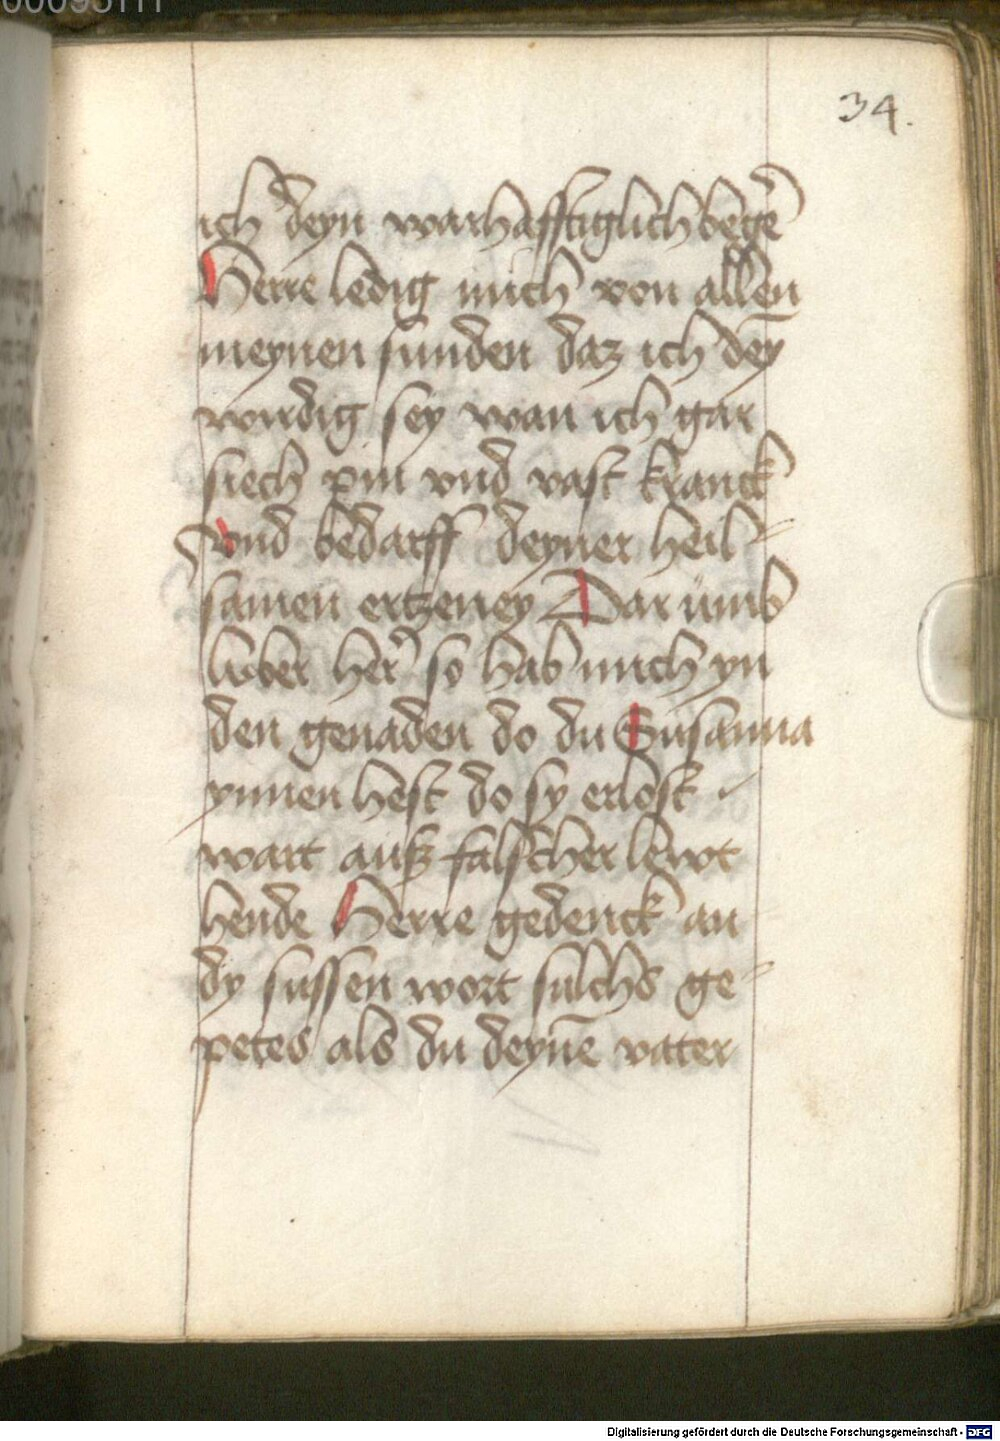 34.
ich deyn warhafftiglich beger̄
Herre ledig mich von allen
meynen sunden daz ich dey̅
wirdig sey wan ich gar
siech pin vnd vast kranck
vnd bedarff deyner heil-
samen ertzeney Dar umb
lieber her̄ so hab mich yn
den genaden do du Susanna
ynnen hest do sy erlost
wart ausz falscher lewt
hende Herre gedenck an
dy sussen wort sulchs ge-
petes als du deyne̅ vater
Digitalisierung gefördert durch die Deutsche Forschungsgemeinschaft - DFG